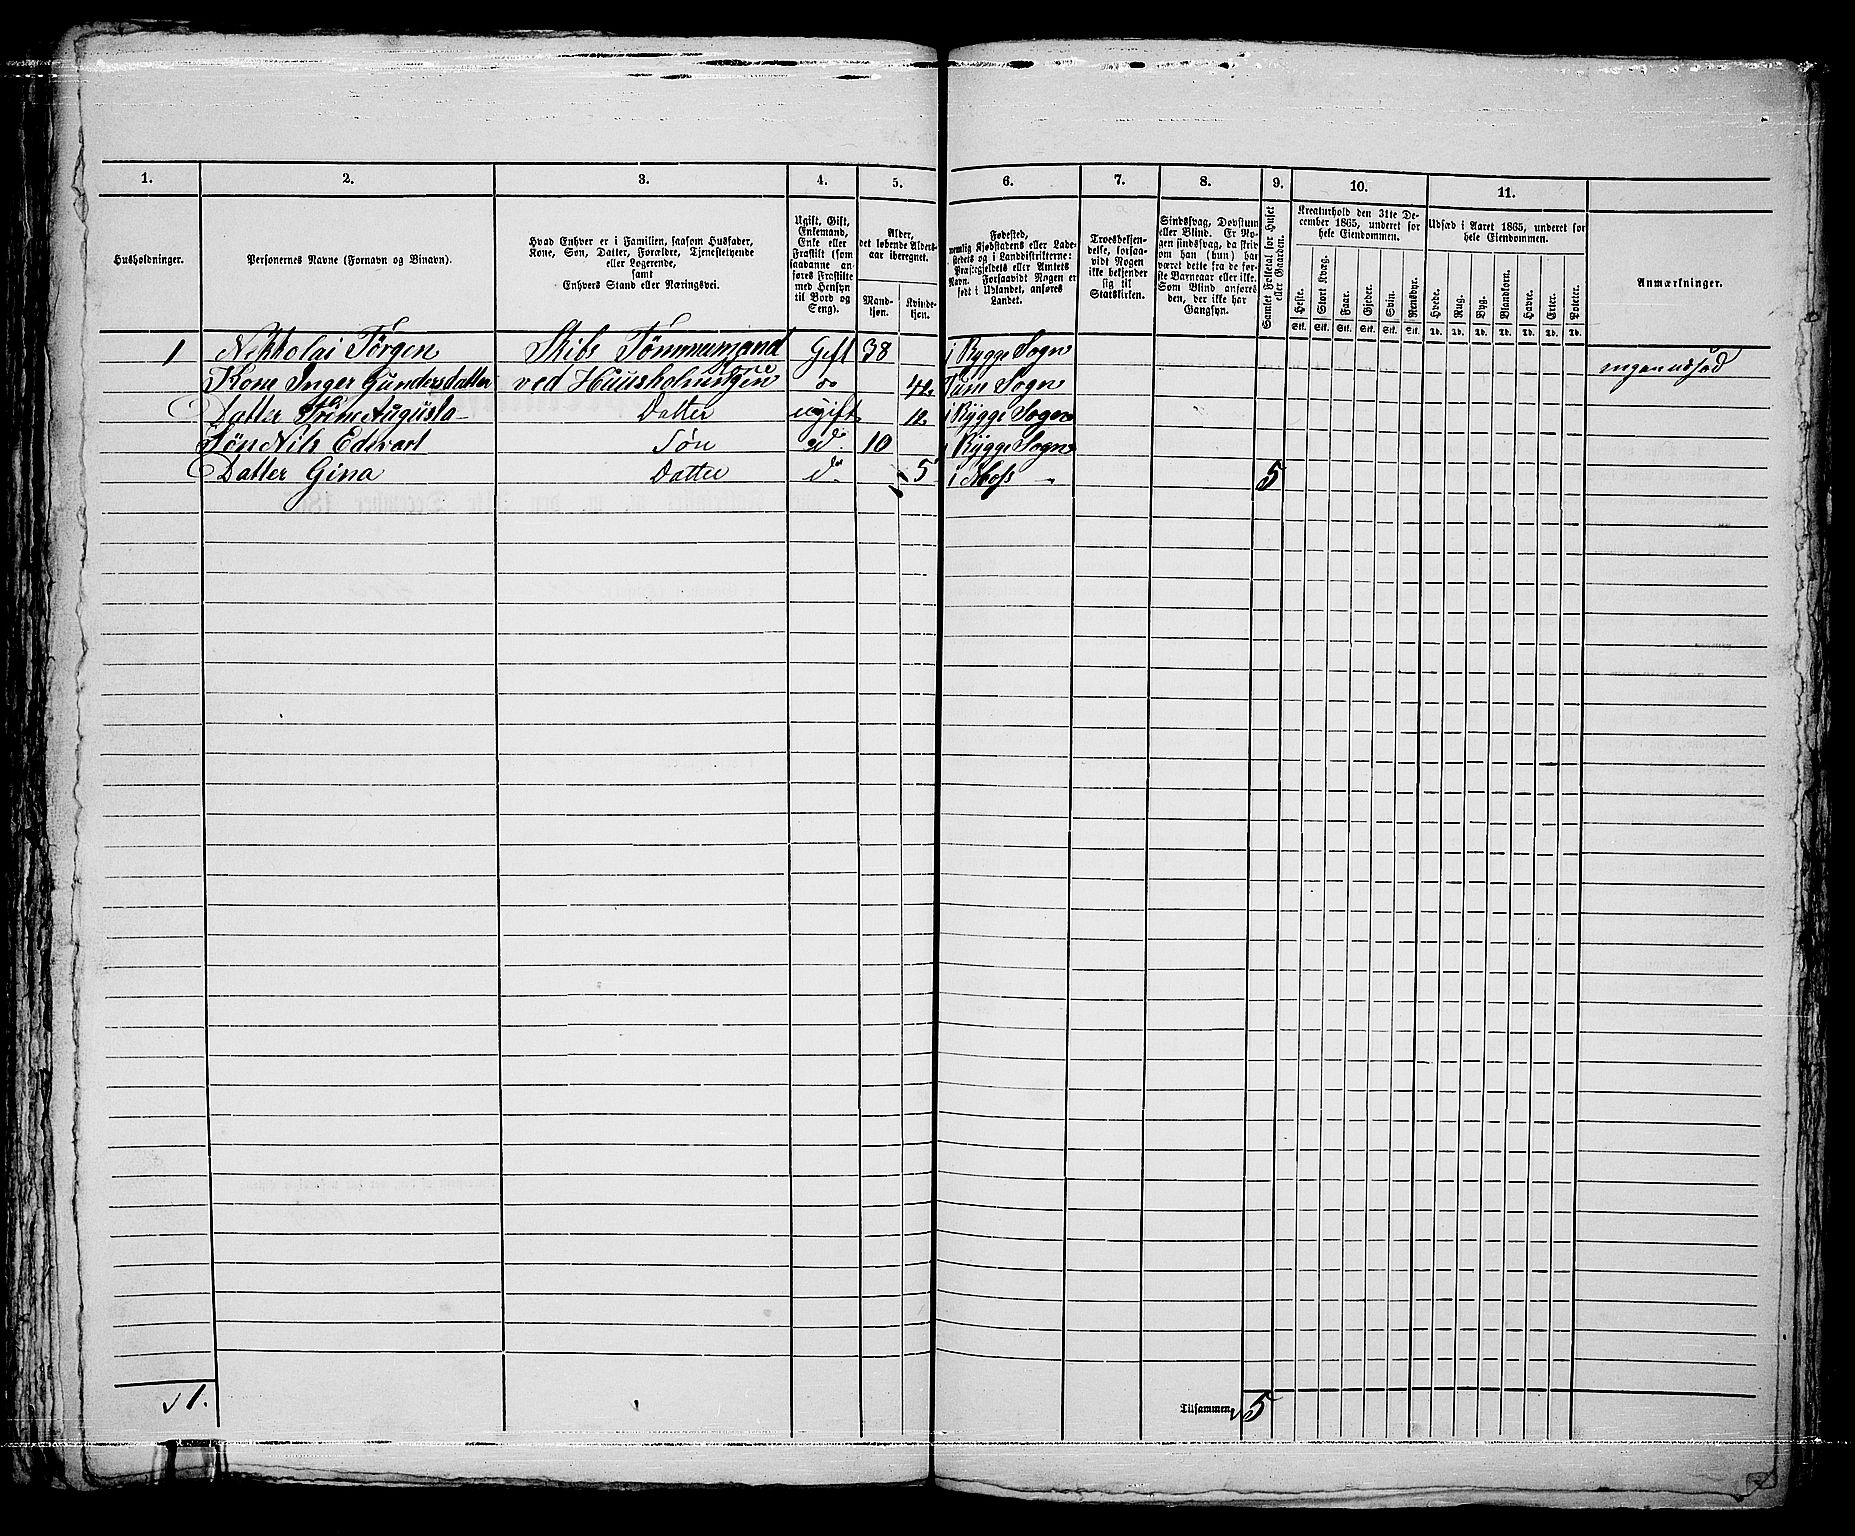 1. 2. 3. 4. 5. 6. 7. 8. 9. 10. 11.
Husholdninger.
Personernes Navne (Fornavn og Binavn).
Hvad Enhver er i Familien, saasom Husfader,
Kone, Søn, Datter, Forældre, Tjenestetyende
eller Logerende,
samt
Enhvers Stand eller Næringsvei.
Ugift, Gift,
Enkemand,
Enke eller
Fraskilt (som
saadanne an-
føres Fraskilte
med Hensyn
til Bord og
Seng).
Alder,
det løbende Alders-
aar iberegnet.
Mand-
kjøn.
Kvinde-
kjøn.
Fødested,
nemlig Kjøbstadens eller Lade-
stedets og i Landdistrikterne:
Præstegjeldets eller Amtets
Navn. Forsaavidt Nogen er
født i Udlandet, anføres
Landet.
Troesbekjen-
delse, forsaa-
vidt Nogen
ikke bekjender
sig til
Statskirken.
Sindssvag, Døvstum
eller Blind. Er No-
gen sindssvag, da skriv
om han (hun) har
været dette fra de før-
ste Barneaar eller ikke.
Som Blind anføres
den, der ikke har
Gangsyn.
Samlet Folketal for Huset
eller Gaarden.
Kreaturhold den 31te De-
cember 1865, underet for
hele Eiendommen.
Heste. Stort Kvæg. Faar. Gjeder. Svin. Rensdyr.
Stk. Stk. Stk. Stk. Stk. Stk.
Udsæd i Aaret 1865, underet for
hele Eiendommen.
Hvede. Rug. Byg. Blandkorn. Havre. Erter. Poteter.
Td. Td. Td. Td. Td. Td. Td.
Anmærkninger.
1 Nikkolai Jørgen Skibs Tømmermand Gift 38 i Rygge Sogn ingen udsæd
Kone
Kone Inger Gundersdatter ved Huusholningen do 42 Sogn
Datter Augusta Datter ugift 12 i Rygge Sogn
Søn Nils Edvart Søn d 10 i Rygge Sogn
Datter Gina Datter d 5 i Moss 5
1. Tilsammen 5